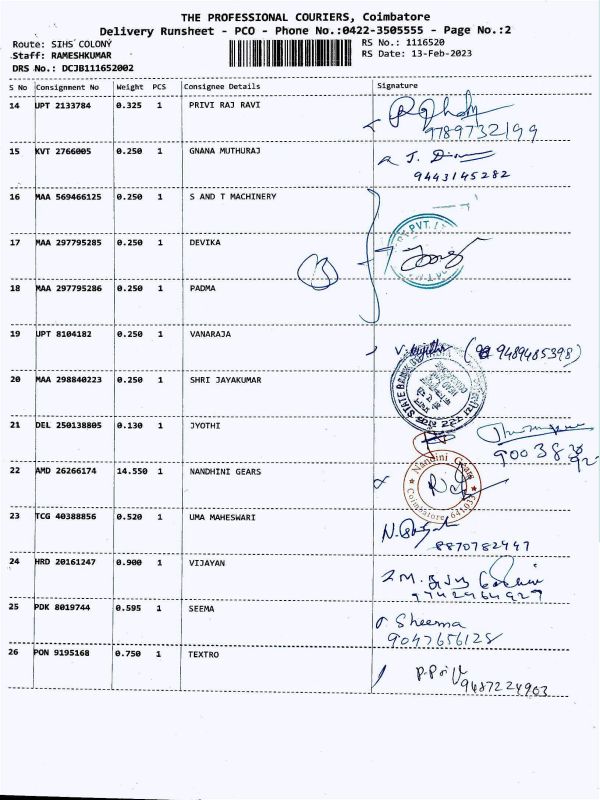 THE PROFESSIONAL COURIERS, Coimbatore
Delivery Runsheet - PCO - Phone No.:0422-3505555 - Page No.:2
Route: SIHS COLONY
RS No.: 1116520
Staff: RAMESHKUMAR
RS Date: 13-Feb-2023
DRS No.: DCJB111652002
S No Consignment No Weight PCS Consignee Details Signature
14 UPT 2133784 0.325 1 PRIVI RAJ RAVI
9789732199
15 KVT 2766005 0.250 1 GNANA MUTHURAJ
9443145282
16 MAA 569466125 0.250 1 S AND T MACHINERY
PVT.
17 MAA 297795285 0.250 1 DEVIKA
18 MAA 297795286 0.250 1 PADMA
19 UPT 8104182 0.250 1 VANARAJA
9489485398)
20 MAA 298840223 0.250 1 SHRI JAYAKUMAR
STATE BANK
21 DEL 250138805 0.130 1 JYOTHI
22 AMD 26266174 14.550 1 NANDHINI GEARS
Nandini Gears
Coimbatore 641033
23 TCG 40388856 0.520 1 UMA MAHESWARI
8870782447
24 HRD 20161247 0.900 1 VIJAYAN
9742964927
25 PDK 8019744 0.595 1 SEEMA
Sheema
9047656128
26 PON 9195168 0.750 1 TEXTRO
9487224903